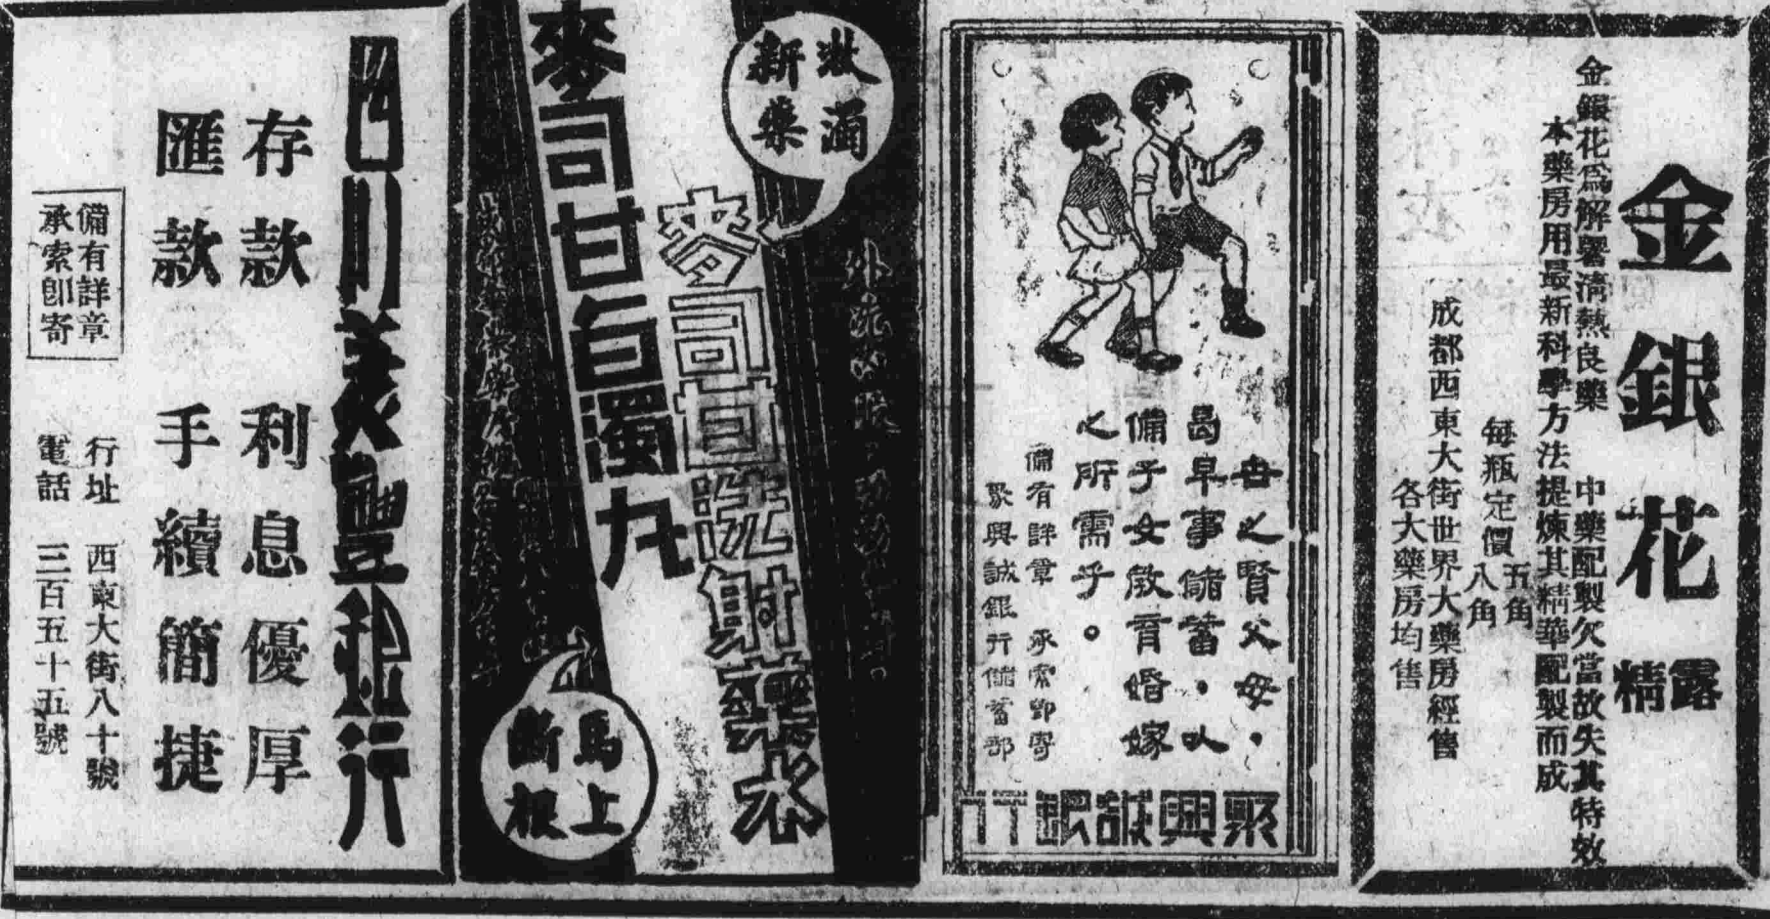 金銀花
露精
金銀花爲解暑清熱良藥 中藥配製欠當故失其特效
本藥房用最新科學方法提煉其精華配製而成
每瓶定價 五角 八角
成都西東大街世界大藥房經售
各大藥房均售
世之賢父母，
曷早事儲蓄，以
備子女教育婚嫁
之所需乎。
備有詳章 承索即寄
聚興誠銀行儲蓄部
聚興誠銀行
淋濁
新藥
麥司甘洗射藥水
麥司甘白濁丸
馬上
斷根
四川美豐銀行
存款 利息優厚
匯款 手續簡捷
備有詳章
承索卽寄
行址 西東大街八十號
電話 三百五十五號